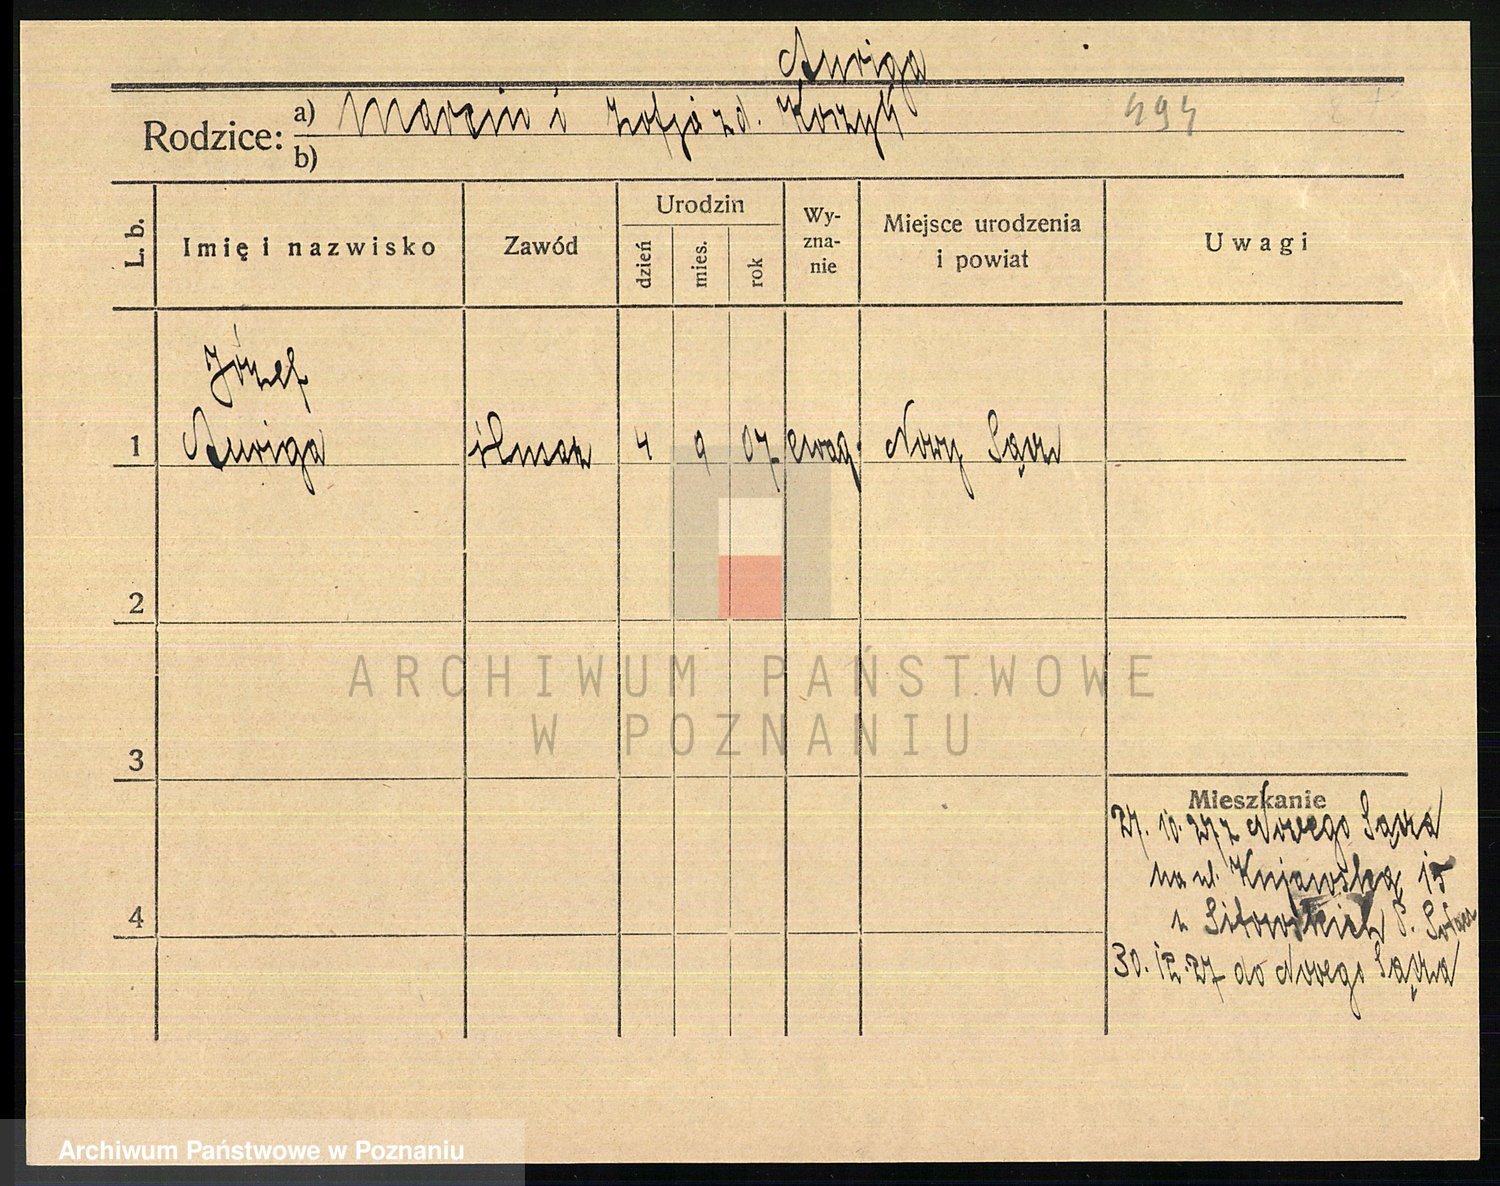 Auriga
Rodzice: a) Marcin i Zofja z d. Korzyk 494
b)
L. b. Imię i nazwisko Zawód Urodzin dzień mies. rok Wyznanie Miejsce urodzenia i powiat Uwagi
Józef
1 Auriga ślusarz 4 9 07 ewag. Nowy Sącz
2
3
Mieszkanie
27. 10. 27 z Nowego Sącza
na ul. Kujawską 15
4
u P.
30. 12. 27 do Nowego Sącza
ARCHIWUM PAŃSTWOWE
W POZNANIU
Archiwum Państwowe w Poznaniu